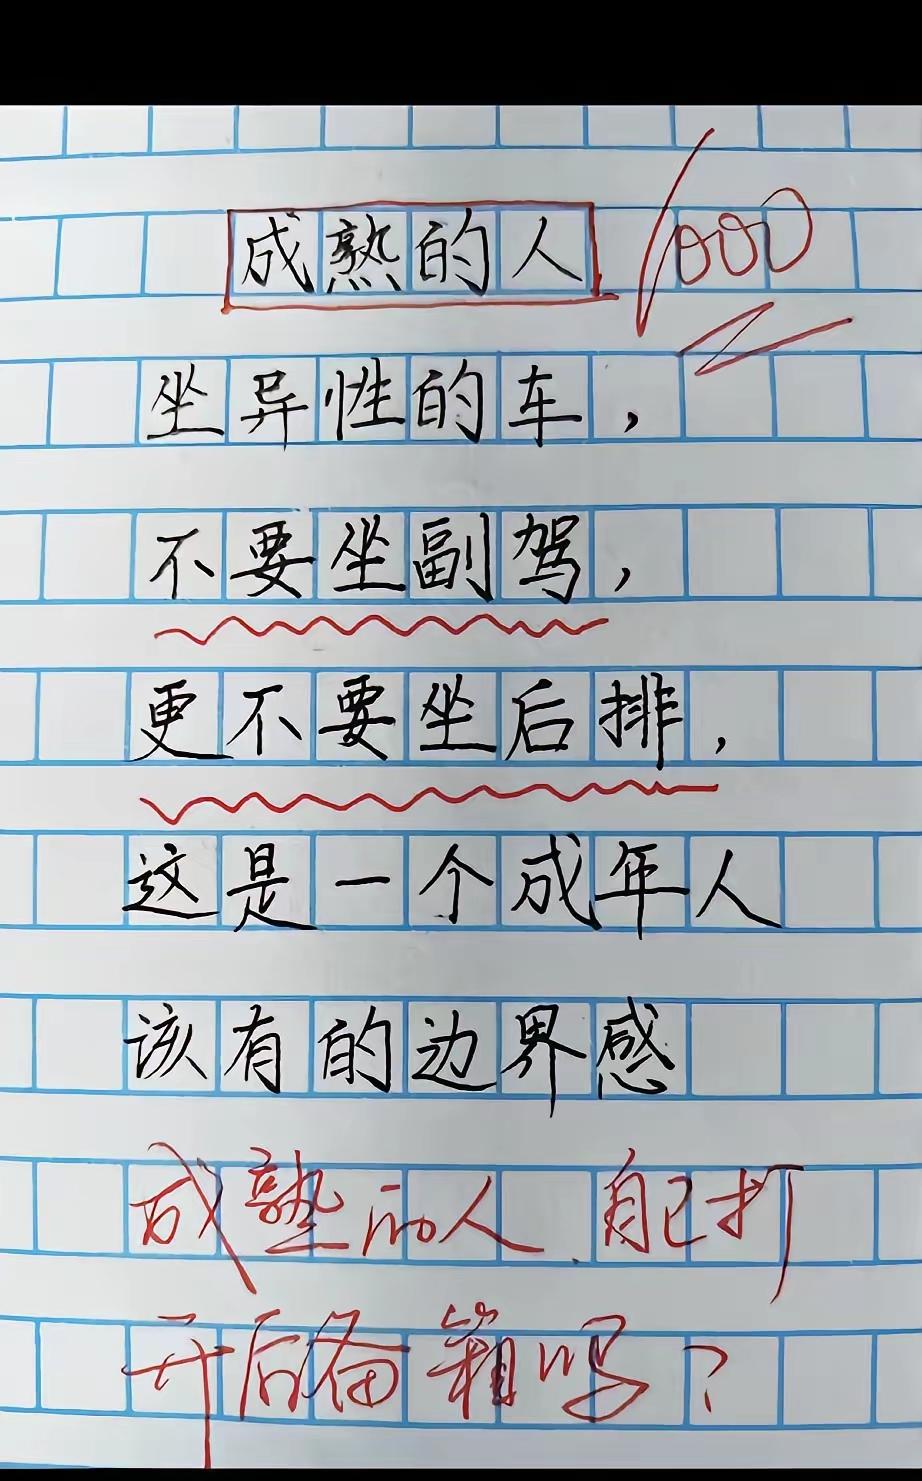 成熟的人 1000
坐异性的车，
不要坐副驾，
更不要坐后排，
这是一个成年人
该有的边界感
成熟的人 自己打
开后备箱吗？